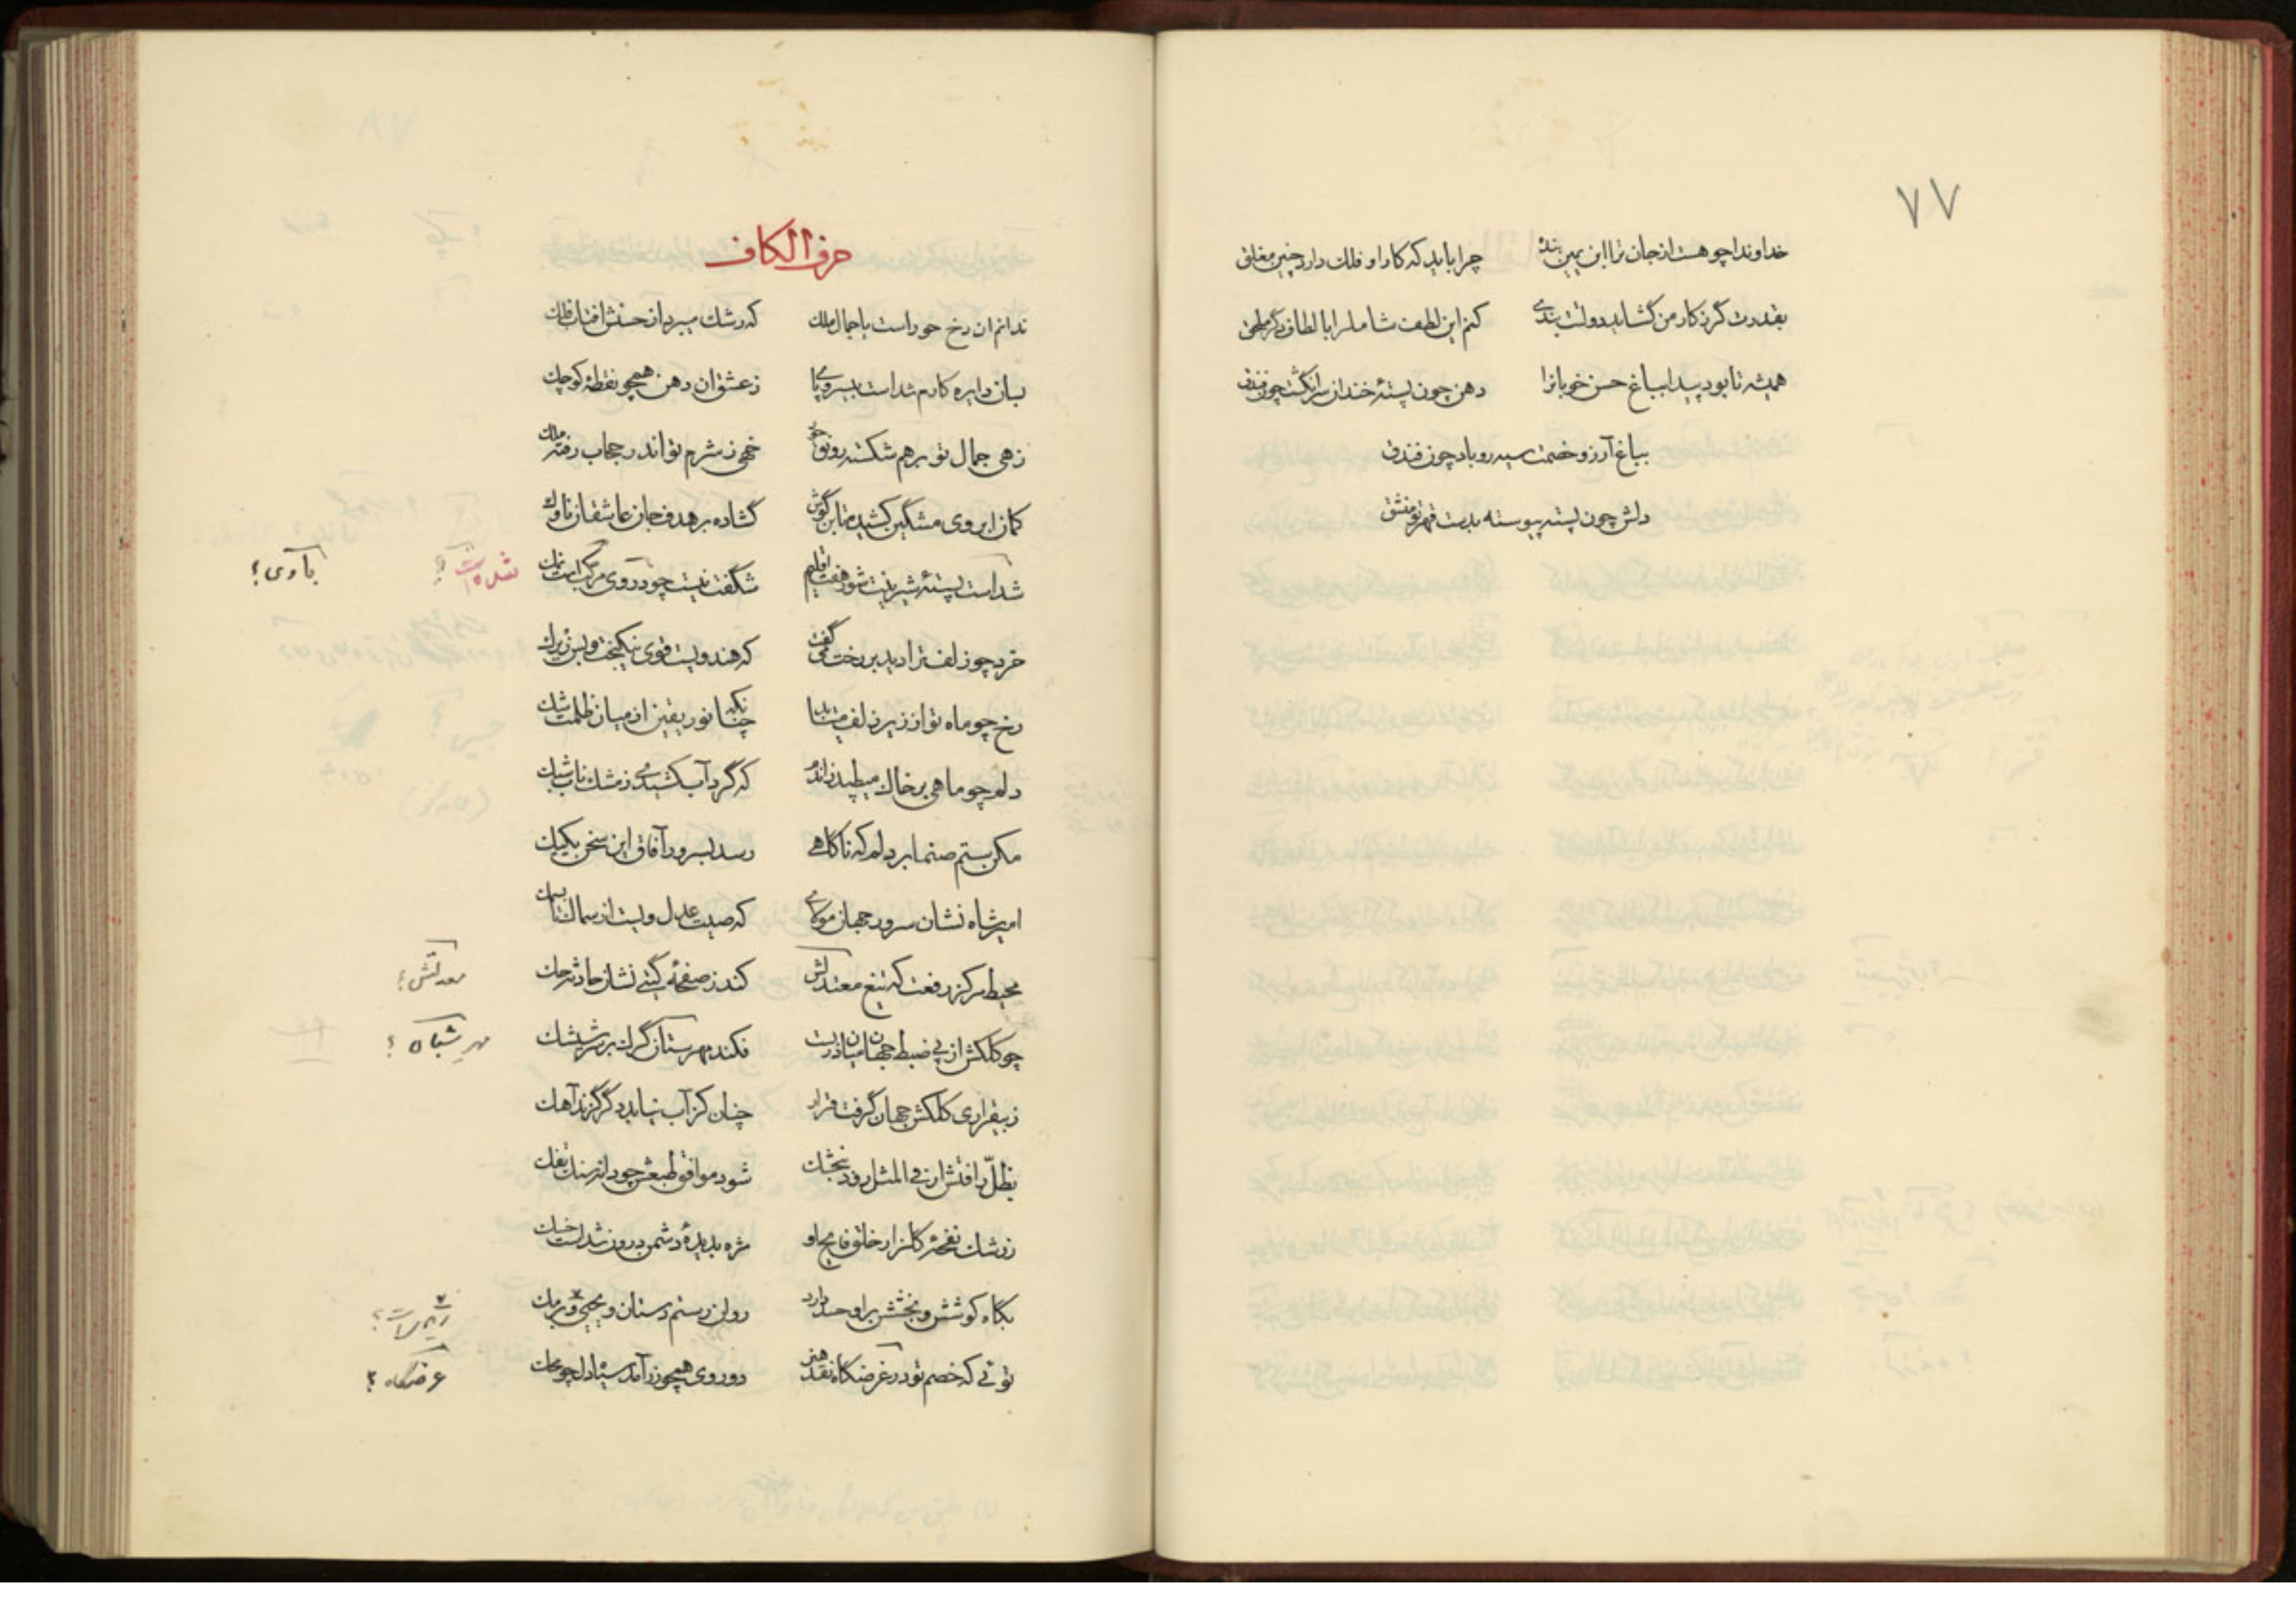 ۷۷
خداوندا چو هست از جان ترا ابن یمین بنده چرا باید که کار او فلک دارد چنین مغلق
بقدرت گر ز کار من گشاید دولت بندی کنم این لطف شامل را با لطاف دگر ملحق
همیشه تا بود پیدا بباغ حسن خوبانرا دهن چون پستهٔ خندان سر انگشت چون فندق
بباغ آرزو خصمت سیه رو باد چون فندق
دلش چون پسته پیوسته بدست قهر تو منشق
حرف الکاف
ندانم ان رخ حور است یا جمال ملک که رشک میبرد از حسنش افتاب فلک
بسان دایره کارم شداست بیسر و پای ز عشق ان دهن همچو نقطهٔ کوچک
زهی جمال تو بر هم شکسته رونق حور خهی ز شرم تو اندر حجاب رفته ملک
کمان ابروی مشگین کشیده تا بن گوش گشاده بر هدف جان عاشقان ناوک
شداست پستهٔ شیرینت شور هفت اقلیم شگفت نیست چو در روی مرکب است نمک
نشده است ؟
خرد چو زلف ترا دید بر رخت می گفت که هندویست قوی نیکبخت و بس زیرک
رخ چو ماه تو از زیر زلف میتابد چنانکه نور یقین از میان ظلمت شک
دلم چو ماهی بر خاک میطپد زاندم که گرد آب کشیدی ز مشک ناب شبک
مکن ستم صنما بر دلم که ناگاهی رسد بسرور آفاق این سخن یکیک
امیر شاه نشان سرور جهان که صیت عدل ویست از سماک تا بسمک
محیط مرکز رفعت که تیغ معدلتش کند ز صفحه گیتی نشان حادثه حک
معدلتش ؟
چو کلکش از پی ضبط جهان میان در بست فکند بهر ستان گرگ بر
مر شبان ؟
ز بیقراری کلکش جهان گرفت قرار چنان کز آب نیابد دگر گزند آهک
بظل رافتش ار فی المثل رود شود موافق طبعش چو دانه
ز رشک نفحهٔ گلزار خلق فایح او مژه بدیدهٔ دشمن درون شداست خسک
بگاه کوشش و بخشش برو حسد دارد روان رستم دستان و یحیی برمک
توئی که خصم تو در عرضگاه نقد هنر دو روی همچو زر آمد سیاه دل چو محک
عرضگاه ؟